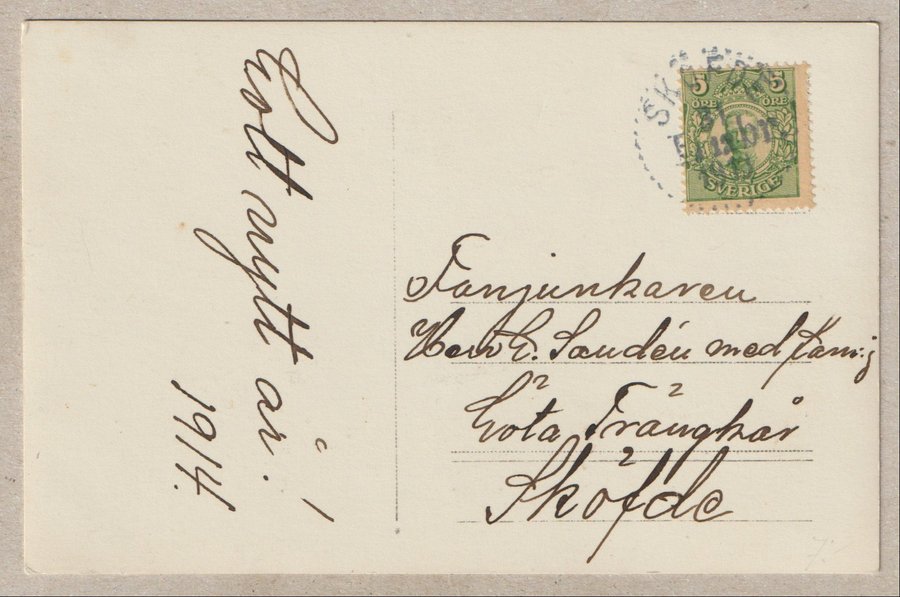 Gott nytt år!
1914.
5 5
ÖRE ÖRE
SVERIGE
31
Fanjunkaren
Herr E. Sandén med familj
Göta Trängkår
Sköfde